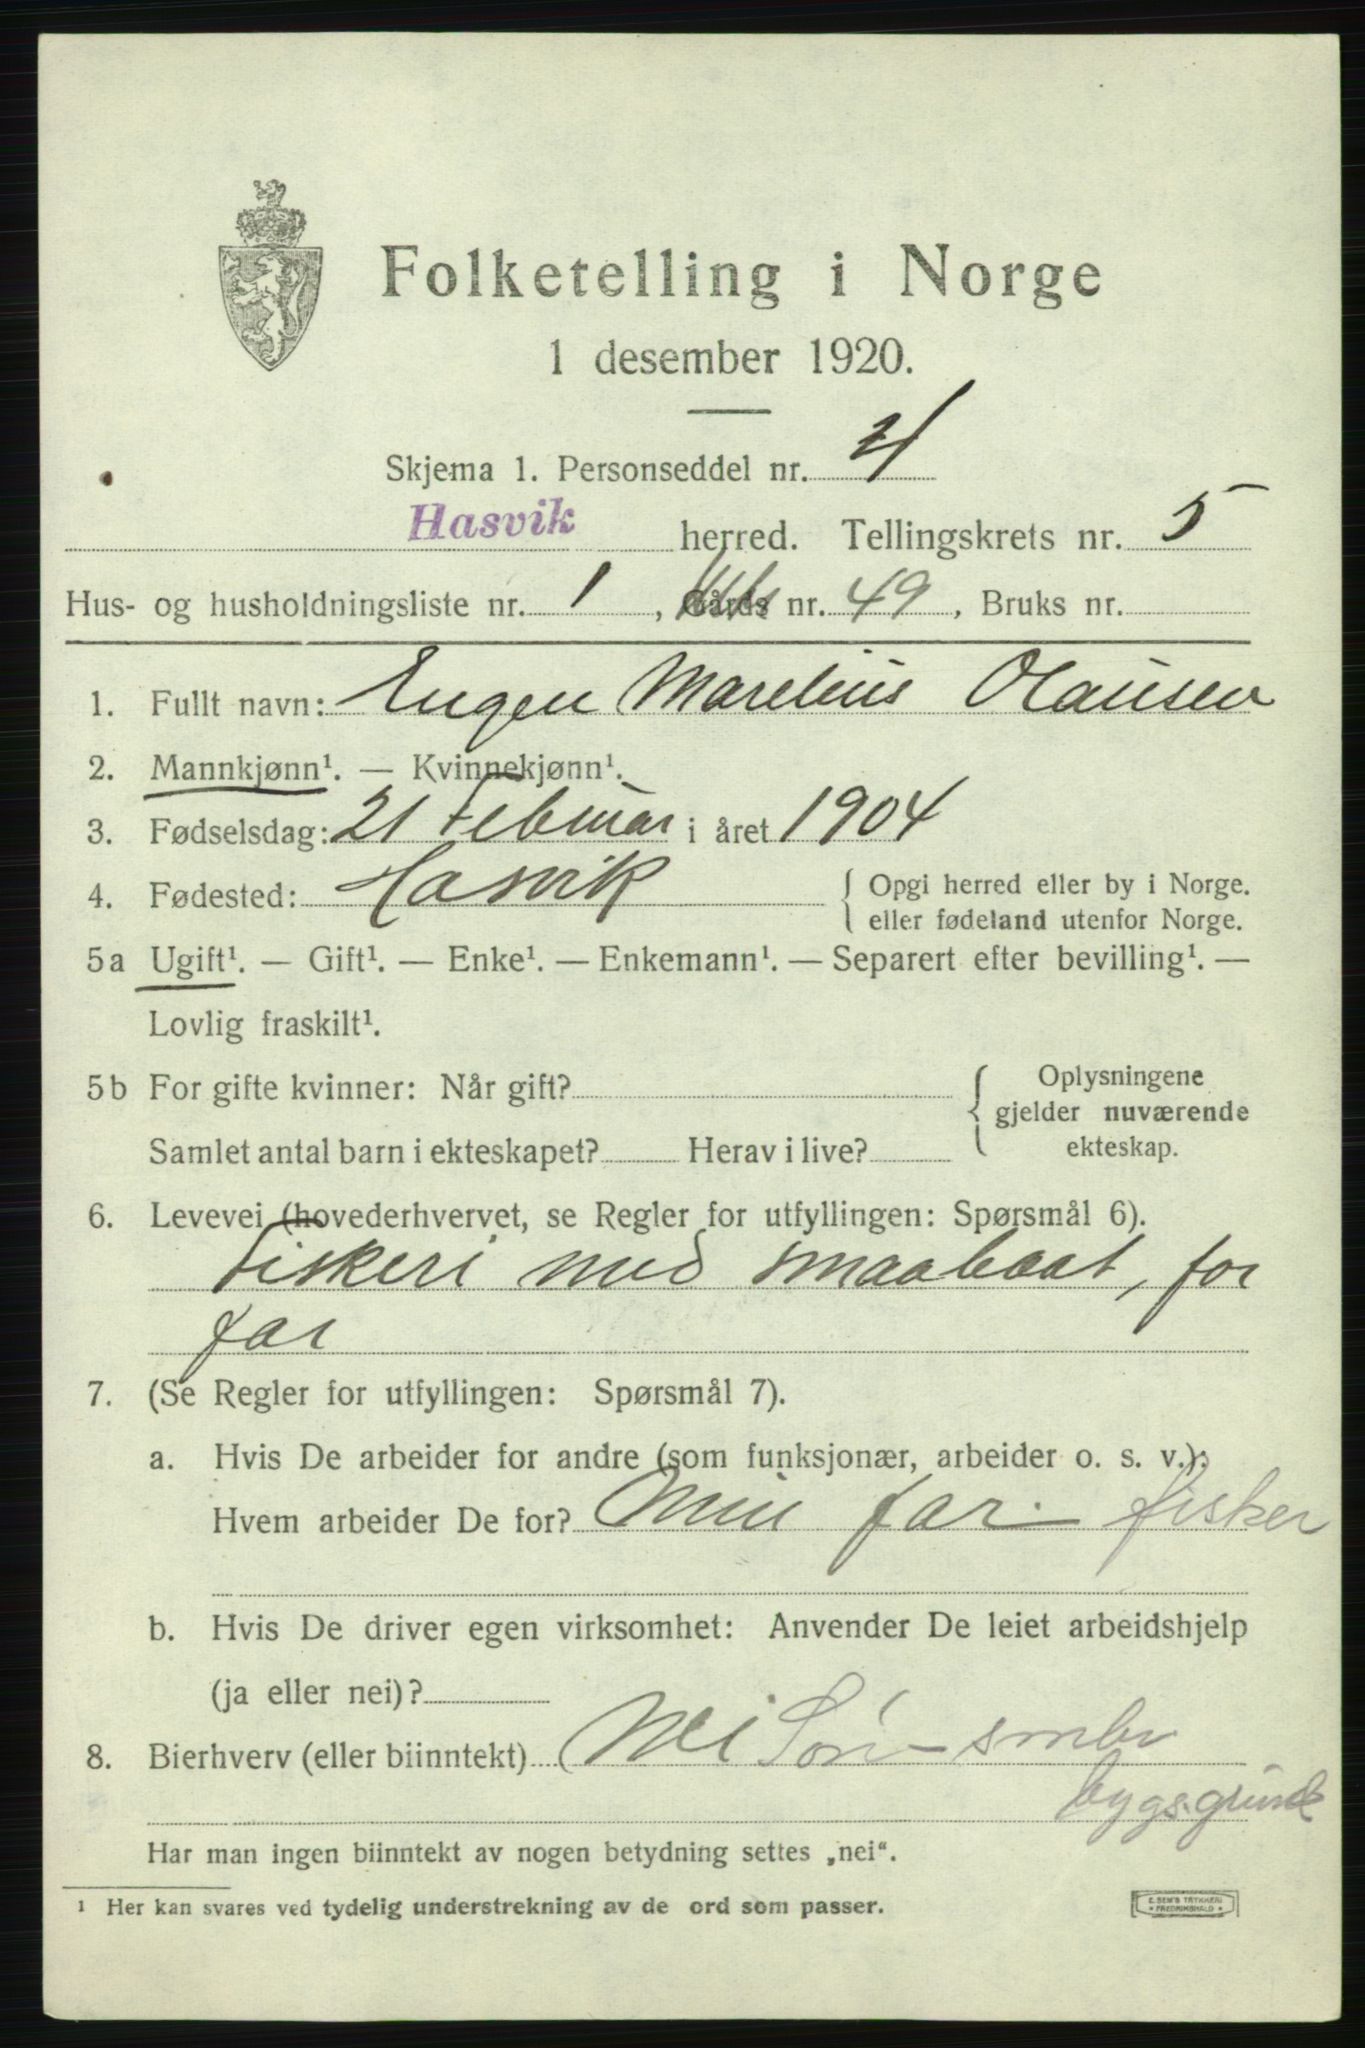 Folketelling i Norge
1 desember 1920.
Skjema 1. Personseddel nr. 4
Hasvik herred. Tellingskrets nr. 5
Hus- og husholdningsliste nr. 1, Gårds nr. 49, Bruks nr.
1. Fullt navn: Eugen Marelius Olausen
2. Mannkjønn¹. — Kvinnekjønn¹.
3. Fødselsdag: 21 Februar i året 1904
4. Fødested: Hasvik { Opgi herred eller by i Norge.
eller fødeland utenfor Norge.
5a Ugift¹. — Gift¹. — Enke¹. — Enkemann¹. — Separert efter bevilling¹. —
Lovlig fraskilt¹.
5b For gifte kvinner: Når gift? { Oplysningene
gjelder nuværende
Samlet antal barn i ekteskapet? Herav i live? ekteskap.
6. Levevei (hovederhvervet, se Regler for utfyllingen: Spørsmål 6).
Fiskeri med smaabaat, for
far
7. (Se Regler for utfyllingen: Spørsmål 7).
a. Hvis De arbeider for andre (som funksjonær, arbeider o. s. v.):
Hvem arbeider De for? Min far. fisker
b. Hvis De driver egen virksomhet: Anvender De leiet arbeidshjelp
(ja eller nei)?
8. Bierhverv (eller biinntekt) Nei Søn - smbr
bygs.grund
Har man ingen biinntekt av nogen betydning settes „nei“.
¹ Her kan svares ved tydelig understrekning av de ord som passer.
E. SEM'S TRYKKERI
FREDRIKSHALD